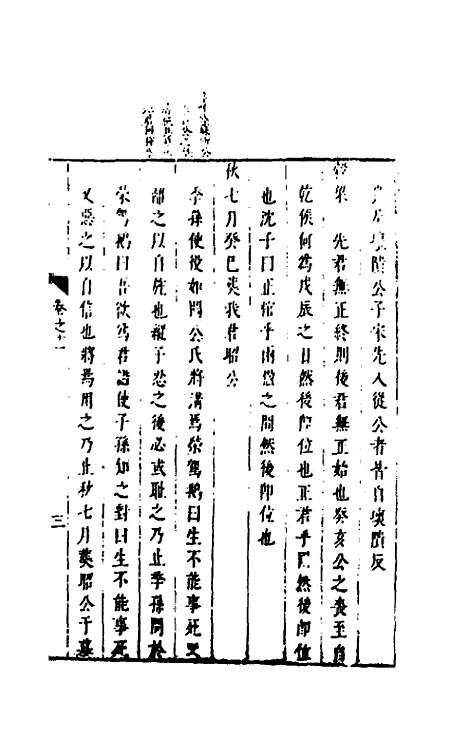 及壞隤公子宋先入從公者皆自壞隤反
穀梁 先君無正終則後君無正始也癸亥公之喪至自
乾侯何爲戊辰之日然後卽位也正君乎國然後卽位
也沈子曰正棺乎兩楹之間然後卽位也
秋七月癸巳葬我君昭公
季孫使役如闞公氏將溝焉榮駕鵝曰生不能事死又
離之以自旌也縱子忍之後必或恥之乃止季孫問於
榮駕鵝曰吾欲爲君謚使子孫知之對曰生不能事死
又惡之以自信也將焉用之乃止秋七月葬昭公于墓
卷之十
三